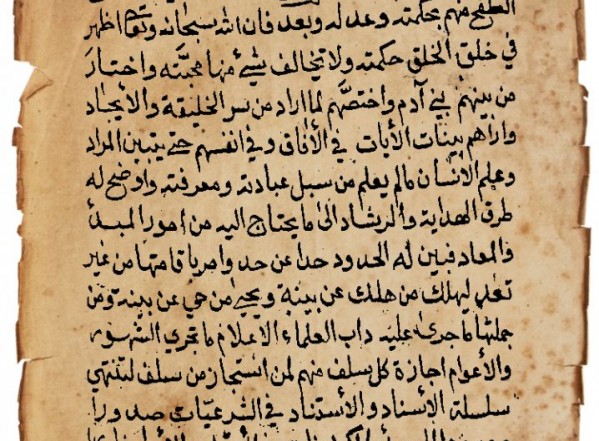 منهم بحكمته وعدله وبعد فان الله سبحانه وتعالى اظهر
في خلق الخلق حكمته ولا تخالف شيئ منها محبته واختار
من بينهم بني آدم واختصهم لما اراد من سر الخليقة والأيجاد
واراهم بينات الأيات في الأفاق وفي انفسهم حتى يتبين المراد
وعلم الأنسان مالم يعلم من سبل عبادته ومعرفته واوضح له
طرق الهداية والرشاد الى ما يحتاج اليه من امور المبدأ
والمعاد فبين له الحدود حدا عن حد وامر باقامتها من غير
تعد ليهلك من هلك عن بينة ويحيى من حي عن بينة ومن
جملتها ما جرى عليه داب العلماء الاعلام ما تجري الشهور
والأعوام اجازة كل سلف منهم لمن استجاز من سلف لتنتهي
سلسلة الأسناد والأستناد في الشرعيات صدورا